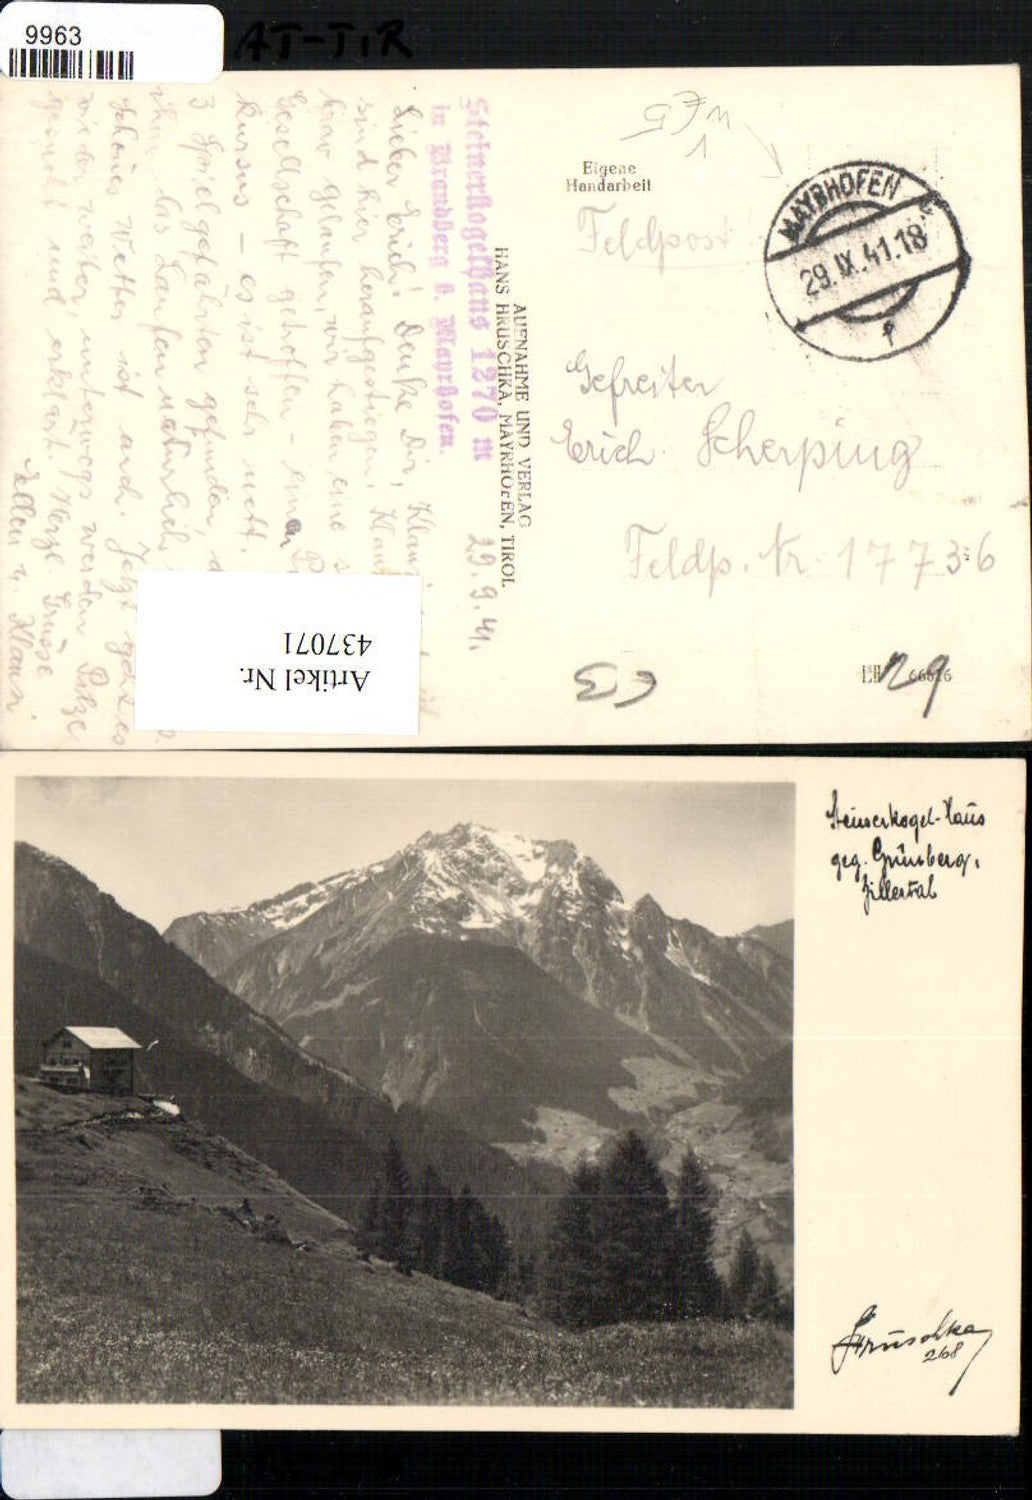 9963
AT-TIR
Eigene
Handarbeit
Feldpost
MAYRHOFEN
29.IX.41.18
Gefreiter
Erich Scherping
Feldp. Nr. 17736
29
AUFNAHME UND VERLAG
HANS HRUSCHKA, MAYRHOFEN, TIROL
Steinerkogelhaus 1270 m
in Brandberg b. Mayrhofen.
29.9.41.
Lieber Erich! Denke Dir,
sind hier heraufgestiegen,
brav gelaufen, wir haben eine
Gesellschaft getroffen - einen
Kursus - es ist sehr nett.
3 Spielgefährten gefunden,
ihm das Laufen natürlich
schönes Wetter ist auch. Jetzt geht es
wieder weiter, unterwegs werden Pilze
gesucht und erklärt. Herzl. Grüsse
Artikel Nr.
437071
Steinerkogel-Haus
geg. Grünberg,
Zillertal
Hruschka
268